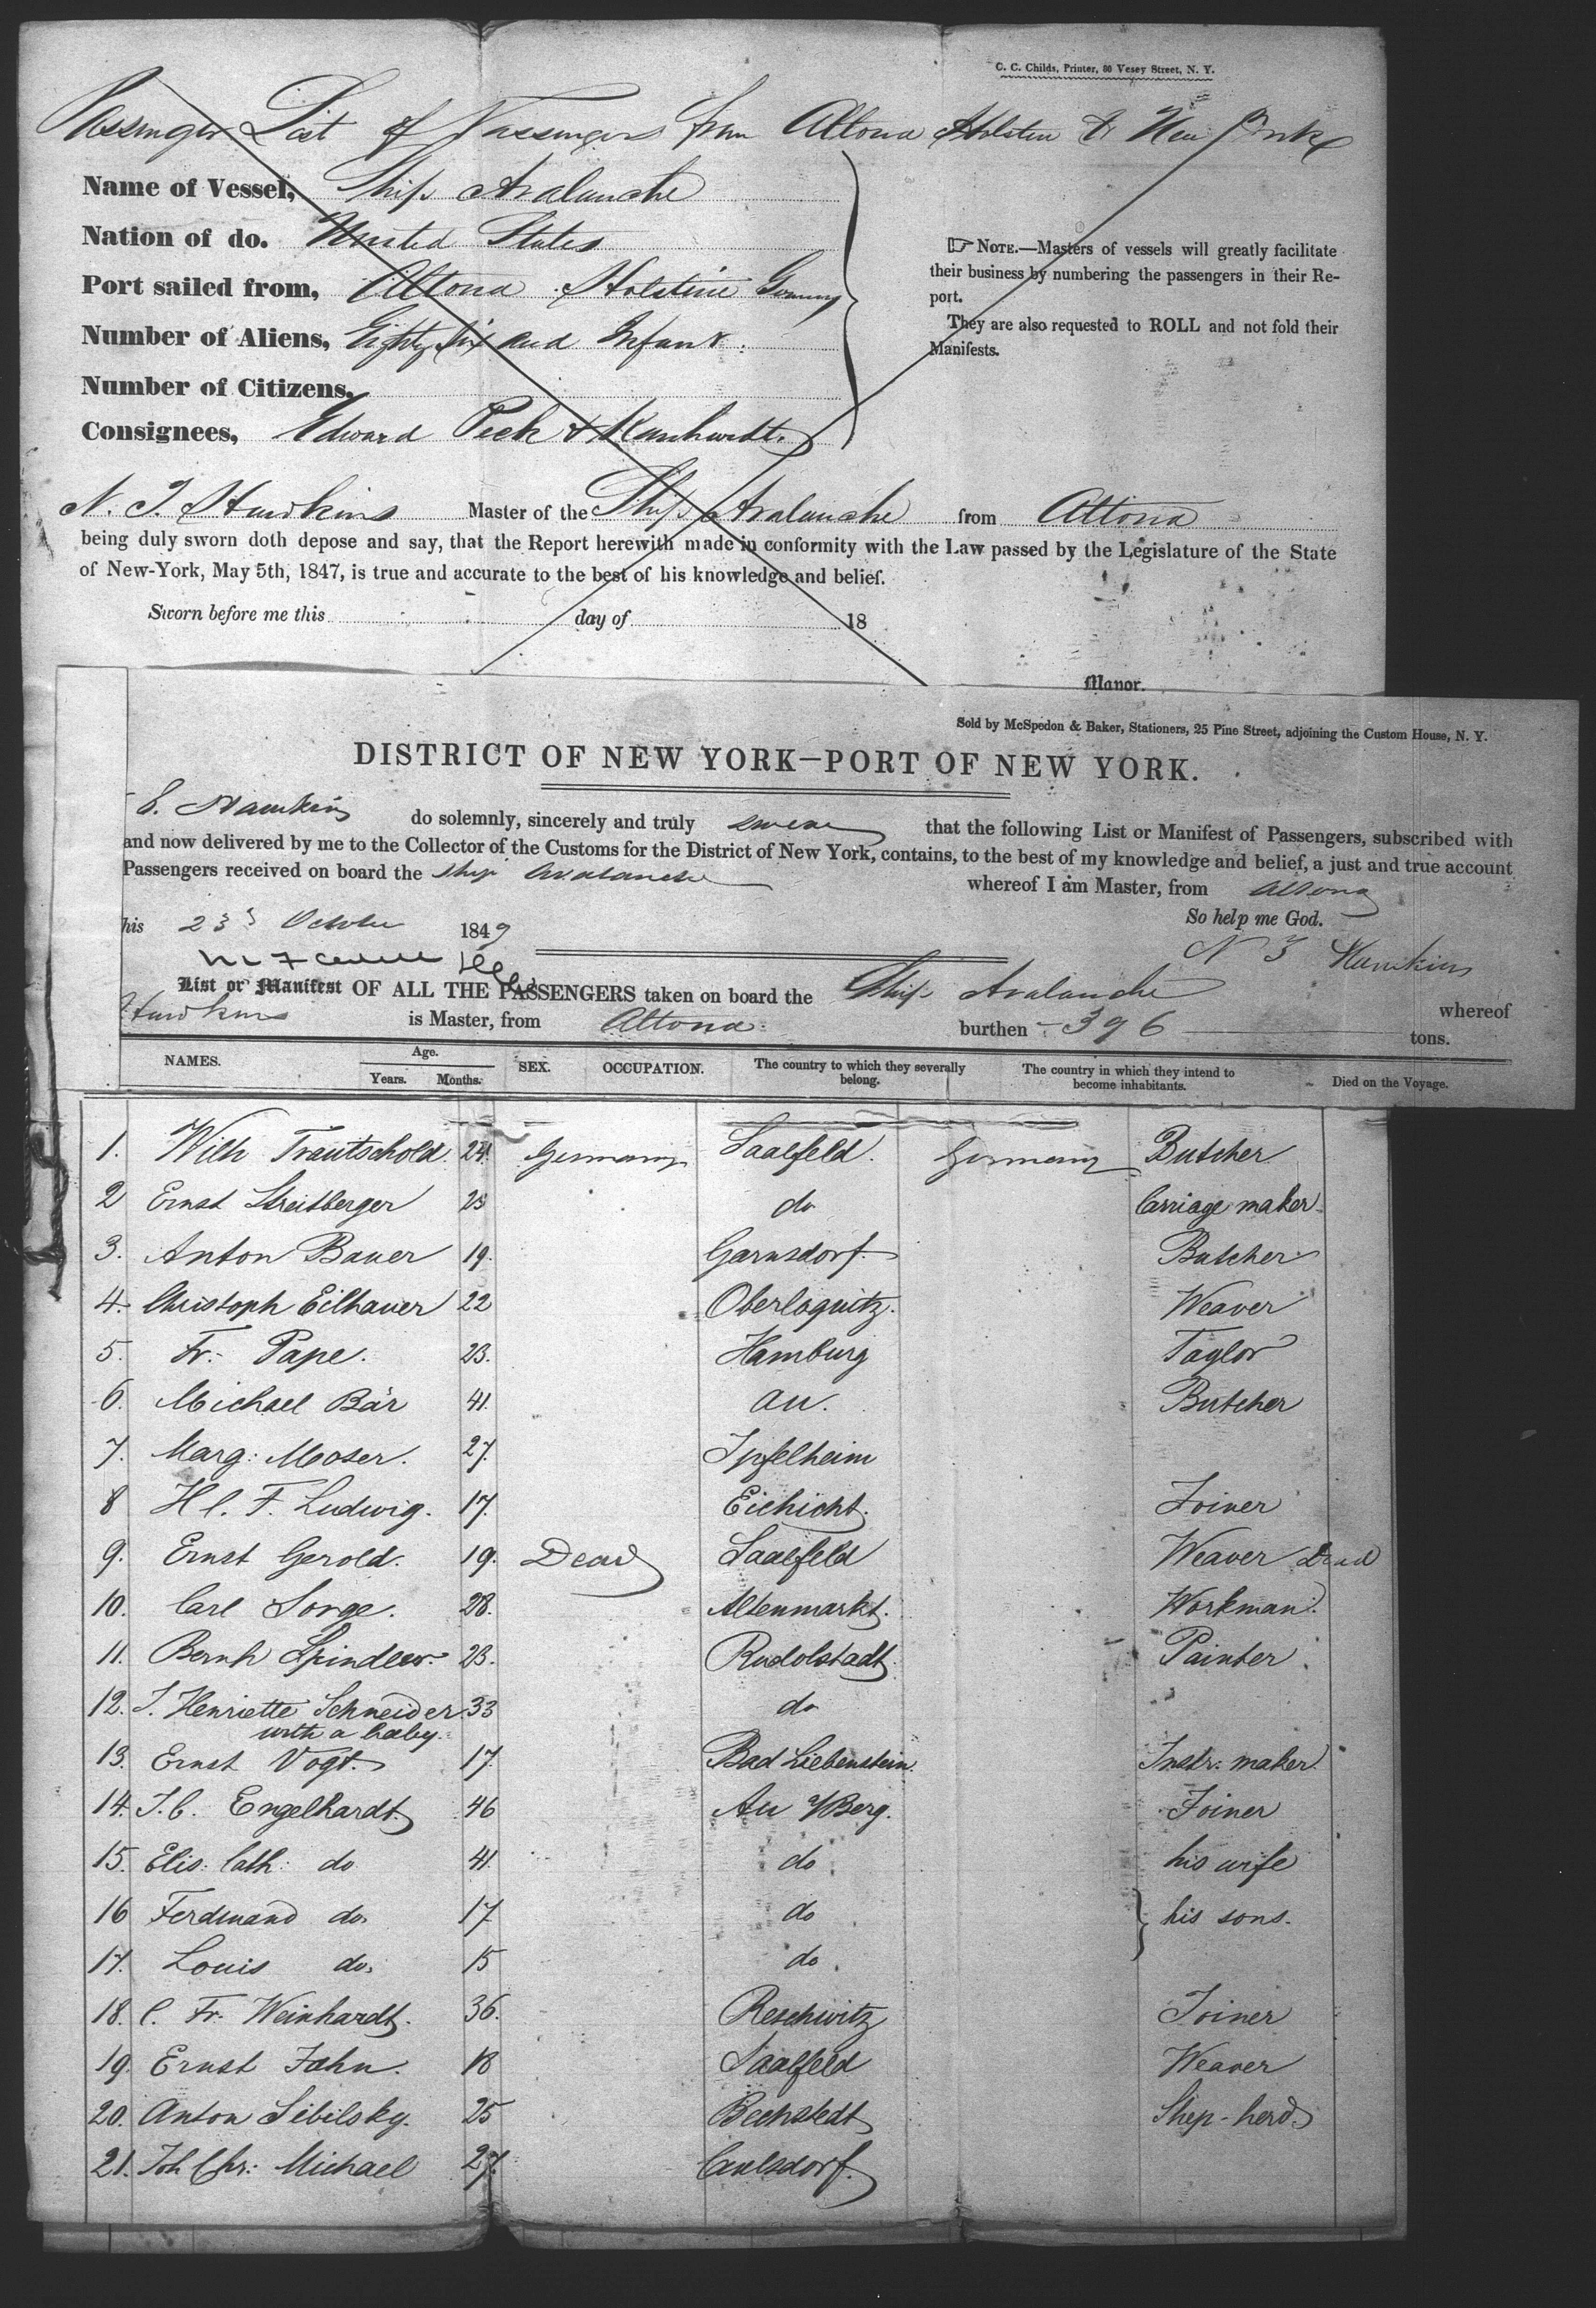 C. C. Childs, Printer, 80 Vesey Street, N. Y.
Passenger List of Passengers from Altona Holstein to New York
Name of Vessel, Ship Avalanche
Nation of do. United States
Port sailed from, Altona Holstein Germany
Number of Aliens, Eighty six and Infant
Number of Citizens,
Consignees, Edward Peck & Kunhardt
☞ NOTE.—Masters of vessels will greatly facilitate
their business by numbering the passengers in their Re-
port.
They are also requested to ROLL and not fold their
Manifests.
N. T. Hawkins Master of the Ship Avalanche from Altona
being duly sworn doth depose and say, that the Report herewith made in conformity with the Law passed by the Legislature of the State
of New-York, May 5th, 1847, is true and accurate to the best of his knowledge and belief.
Sworn before me this day of 18
Manor.
Sold by McSpedon & Baker, Stationers, 25 Pine Street, adjoining the Custom House, N. Y.
DISTRICT OF NEW YORK—PORT OF NEW YORK.
Hawkins do solemnly, sincerely and truly swear that the following List or Manifest of Passengers, subscribed with
and now delivered by me to the Collector of the Customs for the District of New York, contains, to the best of my knowledge and belief, a just and true account
Passengers received on board the Ship Avalanche whereof I am Master, from Altona
So help me God.
his 23d October 1849
N T Hawkins
List or Manifest OF ALL THE PASSENGERS taken on board the Ship Avalanche whereof
Hawkins is Master, from Altona burthen 396 tons.
NAMES. Age. Years. Months. SEX. OCCUPATION. The country to which they severally belong. The country in which they intend to become inhabitants. Died on the Voyage.
1. Wilh Trautschold. 24. Germany Saalfeld. Germany Butcher
2 Ernst Streitberger 23 do Carriage maker
3. Anton Bauer 19. Garnsdorf. Butcher
4. Christoph Eilhauer 22 Oberloquitz. Weaver
5. Fr. Pape. 23. Hamburg Taylor
6. Michael Bär 41. Au. Butcher
7. Marg: Moser. 27. Ipfelheim
8 H C. F. Ludwig. 17. Eichicht. Joiner
9. Ernst Gerold. 19. Dead Saalfeld Weaver Dead
10. Carl Sorge. 28. Altenmarkt. Workman.
11. Bernh Spindler 23. Rudolstadt Painter
12. J. Henriette Schneider 33 do
with a baby.
13. Ernst Vogt. 17. Bad Liebenstein. Instr: maker.
14. J. C. Engelhardt. 46 Au a/Berg. Joiner
15. Elis: Cath: do 41. do his wife
16 Ferdinand do. 17. do } his sons.
17. Louis do. 15 do
18. C. Fr. Weinhardt. 36. Reschwitz Joiner
19. Ernst Jahn. 18 Saalfeld Weaver
20. Anton Sibilsky. 25 Bechstedt Shep-herd.
21. Joh Chr: Michael 27. Carlsdorf.